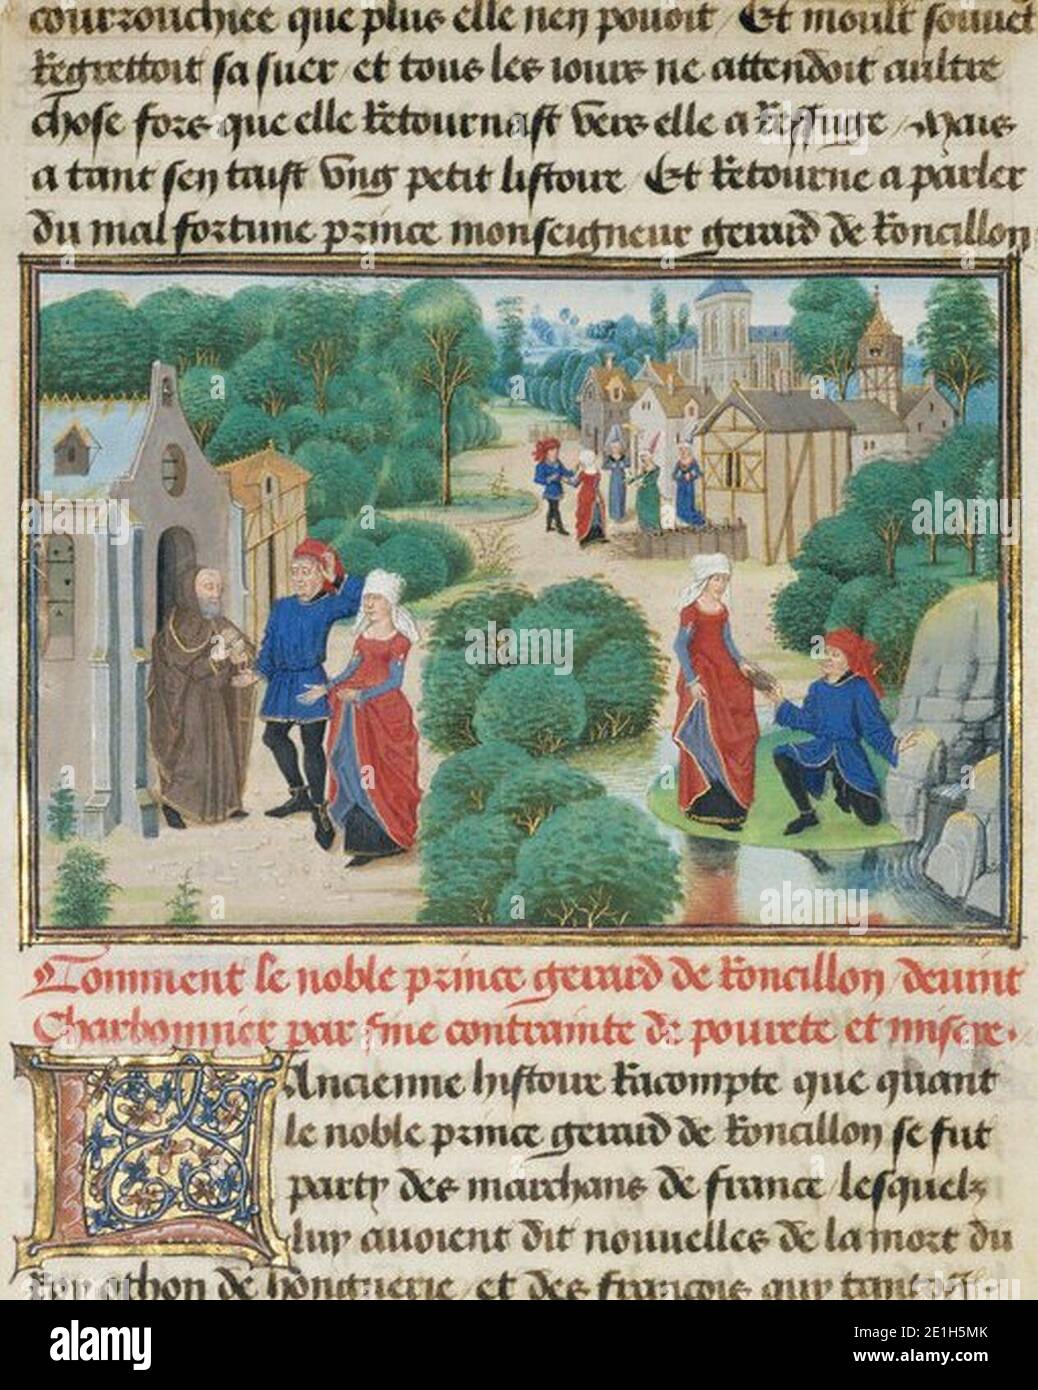 courrouchiee que plus elle nen pouoit / Et moult souuet
Regrettoit sa suer / et tous les iours ne attendoit aultre
chose fors que elle Retournast vers elle a Reffuge / Mais
a tant sen taist vng petit listoire / Et Retourne a parler
du mal fortune prince monseigneur gerard de Roncillon
Comment le noble prince gerard de Roncillon / deuint
Charbonnier par fine contrainte de pourete et misere .
LAncienne histoire Racompte que quant
le noble prince gerard de Roncillon se fut
party des marchans de france / lesquelz
luy auoient dit nouuelles de la mort du
Roy othon de honguerie / et des francois quy tant
alamy
Image ID: 2E1H5MK
www.alamy.com